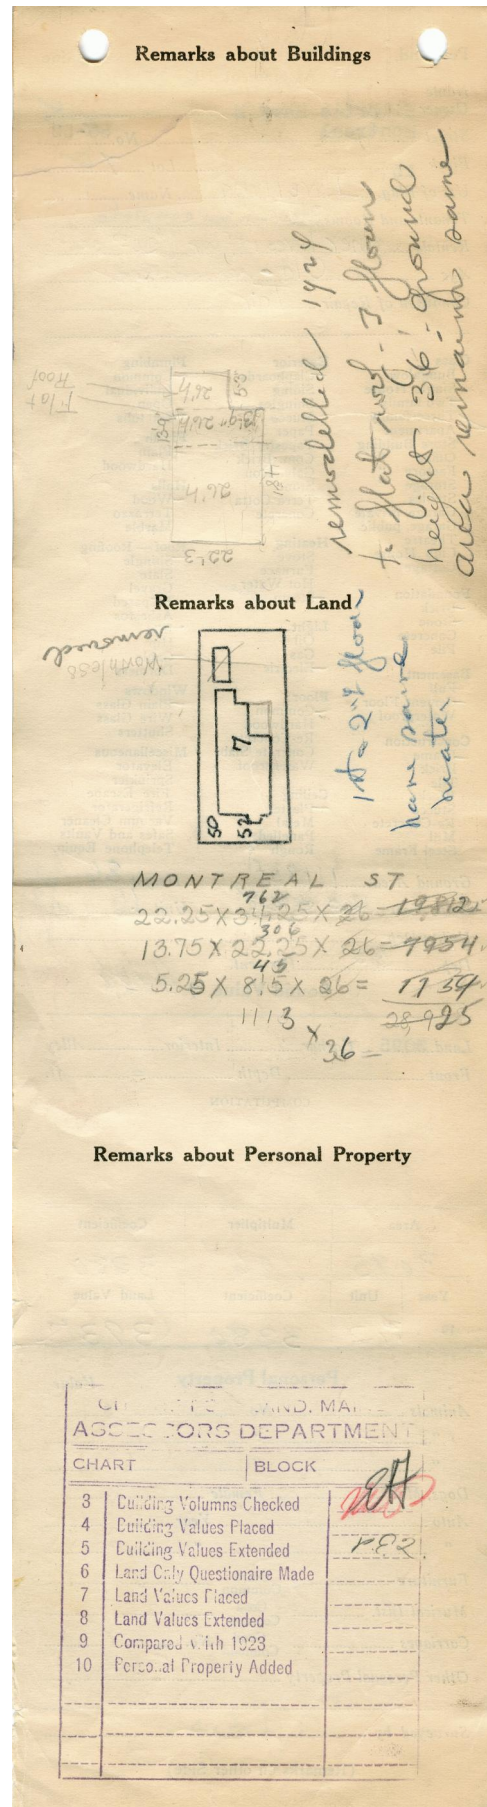 Remarks about Buildings
remodelled 1924
to flat roof - 3 floors
height 36' - ground
area remains same
Flat
Roof
26'h
5'3
13'9
26'h
13'9"
26'h
18'4
22'3
Remarks about Land
Worthless
removed
7
50
52
1st & 2nd floor
have same
heate.
MONTREAL ST
762
22.25 X 34.25 X 26 = 19812.5
306
13.75 X 22.25 X 26 = 7954.
45
5.25 X 8.5 X 26 = 1159
1113 28,925
X 36 =
Remarks about Personal Property
CITY OF PORTLAND, MAINE
ASSESSORS DEPARTMENT
CHART BLOCK
3 Building Volumns Checked
4 Building Values Placed
5 Building Values Extended
6 Land Only Questionaire Made
7 Land Values Placed
8 Land Values Extended
9 Compared With 1923
10 Personal Property Added